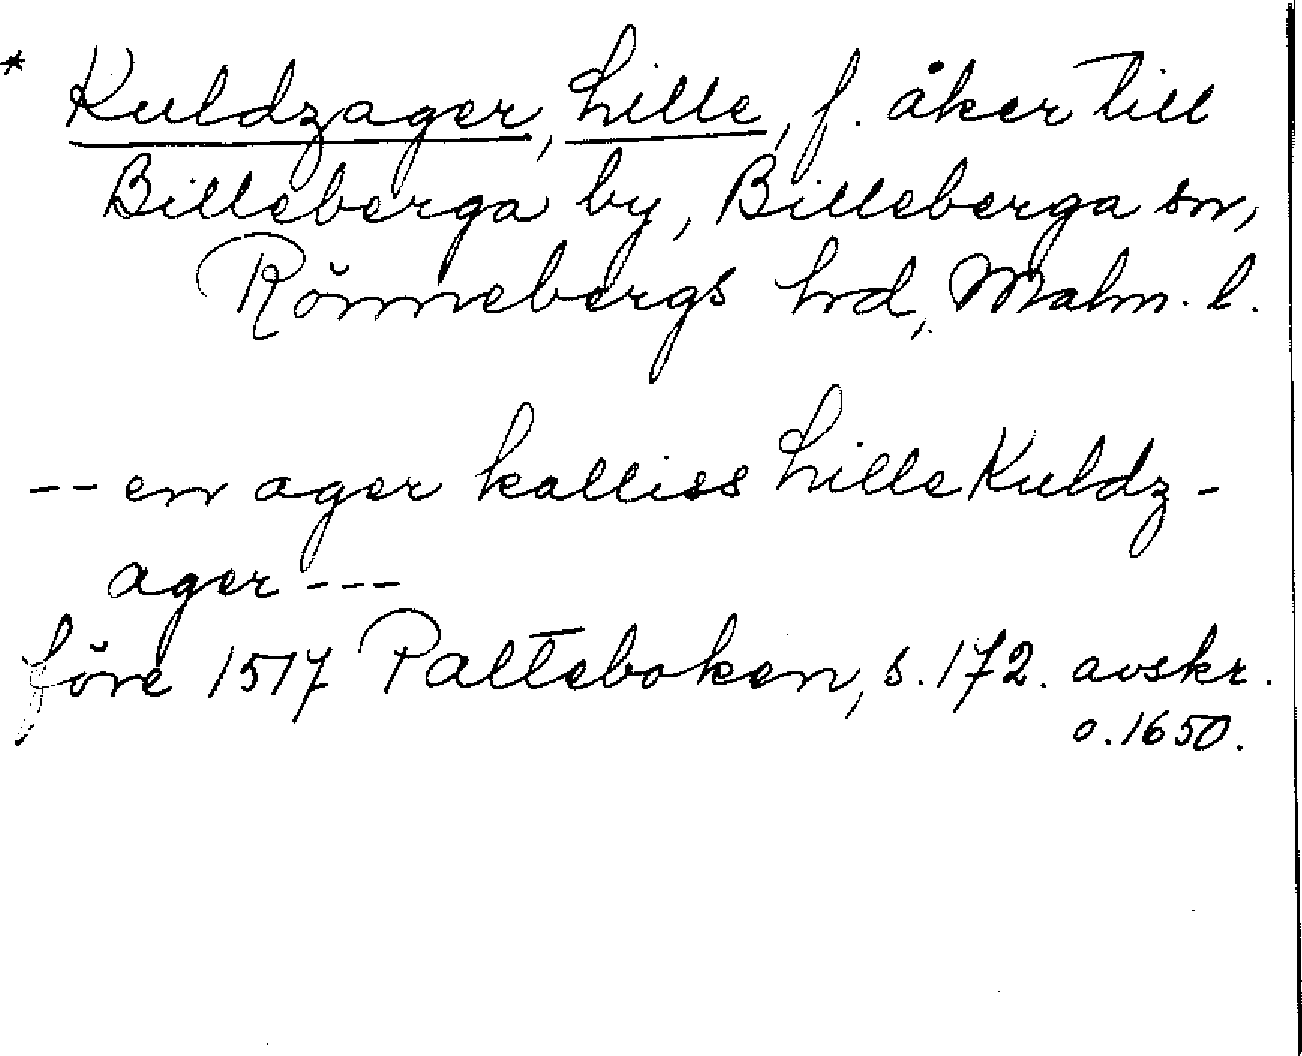 * Kuldzager, Lille, f. åker till
Billeberga by, Billeberga sn,
Rönnebergs hrd, Malm. l.
-- en ager kalliss Lille Kuldz-
ager ---
före 1517 Palteboken, s. 172. avskr.
o. 1650.